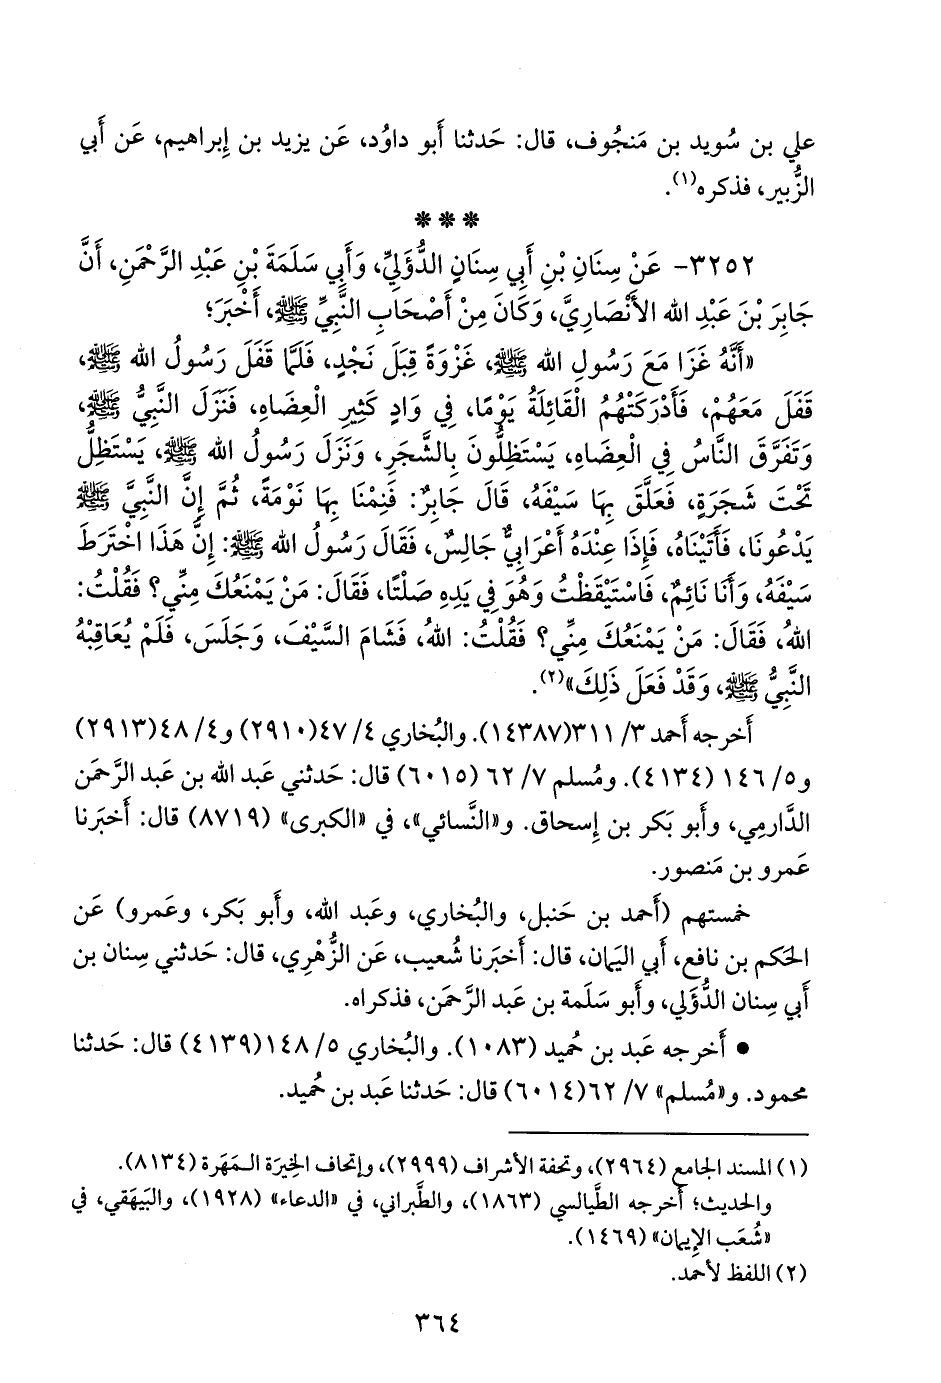 علي بن سُويد بن مَنجُوف، قال: حَدثنا أَبو داوُد، عَن يزيد بن إِبراهيم، عَن أَبي
الزُّبير، فذكره(١).
***
٣٢٥٢- عَنْ سِنَانِ بْنِ أَبِي سِنَانٍ الدُّؤَلِيِّ، وَأَبِي سَلَمَةَ بْنِ عَبْدِ الرَّحْمَنِ، أَنَّ
جَابِرَ بْنَ عَبْدِ الله الأَنْصَارِيَّ، وَكَانَ مِنْ أَصْحَابِ النَّبِيِّ ﷺ، أَخْبَرَ؛
«أَنَّهُ غَزَا مَعَ رَسُولِ الله ﷺ، غَزْوَةً قِبَلَ نَجْدٍ، فَلَمَّا قَفَلَ رَسُولُ الله ﷺ،
قَفَلَ مَعَهُمْ، فَأَدْرَكَتْهُمُ الْقَائِلَةُ يَوْمًا، فِي وَادٍ كَثِيرِ الْعِضَاهِ، فَنَزَلَ النَّبِيُّ ﷺ،
وَتَفَرَّقَ النَّاسُ فِي الْعِضَاهِ، يَسْتَظِلُّونَ بِالشَّجَرِ، وَنَزَلَ رَسُولُ الله ﷺ، يَسْتَظِلُّ
تَحْتَ شَجَرَةٍ، فَعَلَّقَ بِهَا سَيْفَهُ، قَالَ جَابِرٌ: فَنِمْنَا بِهَا نَوْمَةً، ثُمَّ إِنَّ النَّبِيَّ ﷺ
يَدْعُونَا، فَأَتَيْنَاهُ، فَإِذَا عِنْدَهُ أَعْرَابِيٌّ جَالِسٌ، فَقَالَ رَسُولُ الله ﷺ: إِنَّ هَذَا اخْتَرَطَ
سَيْفَهُ، وَأَنَا نَائِمٌ، فَاسْتَيْقَظْتُ وَهُوَ فِي يَدِهِ صَلْتًا، فَقَالَ: مَنْ يَمْنَعُكَ مِنِّي؟ فَقُلْتُ:
اللهُ، فَقَالَ: مَنْ يَمْنَعُكَ مِنِّي؟ فَقُلْتُ: اللهُ، فَشَامَ السَّيْفَ، وَجَلَسَ، فَلَمْ يُعَاقِبْهُ
النَّبِيُّ ﷺ، وَقَدْ فَعَلَ ذَلِكَ»(٢).
أَخرجه أَحمد ٣/ ٣١١(١٤٣٨٧). والبُخاري ٤/ ٤٧(٢٩١٠) و٤/ ٤٨(٢٩١٣)
و٥/ ١٤٦ (٤١٣٤). ومُسلم ٧/ ٦٢ (٦٠١٥) قال: حَدثني عَبد الله بن عَبد الرَّحمَن
الدَّارمي، وأَبو بَكر بن إِسحاق. و«النَّسائي»، في «الكبرى» (٨٧١٩) قال: أَخبَرنا
عَمرو بن مَنصور.
خمستهم (أَحمد بن حَنبل، والبُخاري، وعَبد الله، وأَبو بَكر، وعَمرو) عَن
الحَكم بن نافع، أَبي اليَمان، قال: أَخبَرنا شُعيب، عَن الزُّهْري، قال: حَدثني سِنان بن
أَبي سِنان الدُّؤَلي، وأَبو سَلَمة بن عَبد الرَّحمَن، فذكراه.
• أَخرجه عَبد بن حُميد (١٠٨٣). والبُخاري ٥/ ١٤٨(٤١٣٩) قال: حَدثنا
محمود. و«مُسلم» ٧/ ٦٢(٦٠١٤) قال: حَدثنا عَبد بن حُميد.
(١) المسند الجامع (٢٩٦٤)، وتحفة الأشراف (٢٩٩٩)، وإتحاف الخِيرَة المَهَرة (٨١٣٤).
والحديث؛ أخرجه الطَّيالسي (١٨٦٣)، والطَّبراني، في «الدعاء» (١٩٢٨)، والبَيهَقي، في
«شُعَب الإيمان» (١٤٦٩).
(٢) اللفظ لأحمد.
٣٦٤